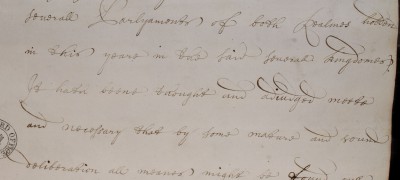 severall Parlyaments of both Realmes holden
in this yeare in the said severall Kingdomes,
It hath beene thought and adiudged meete
and necessary that by some mature and sound
deliberation all meanes might be found out